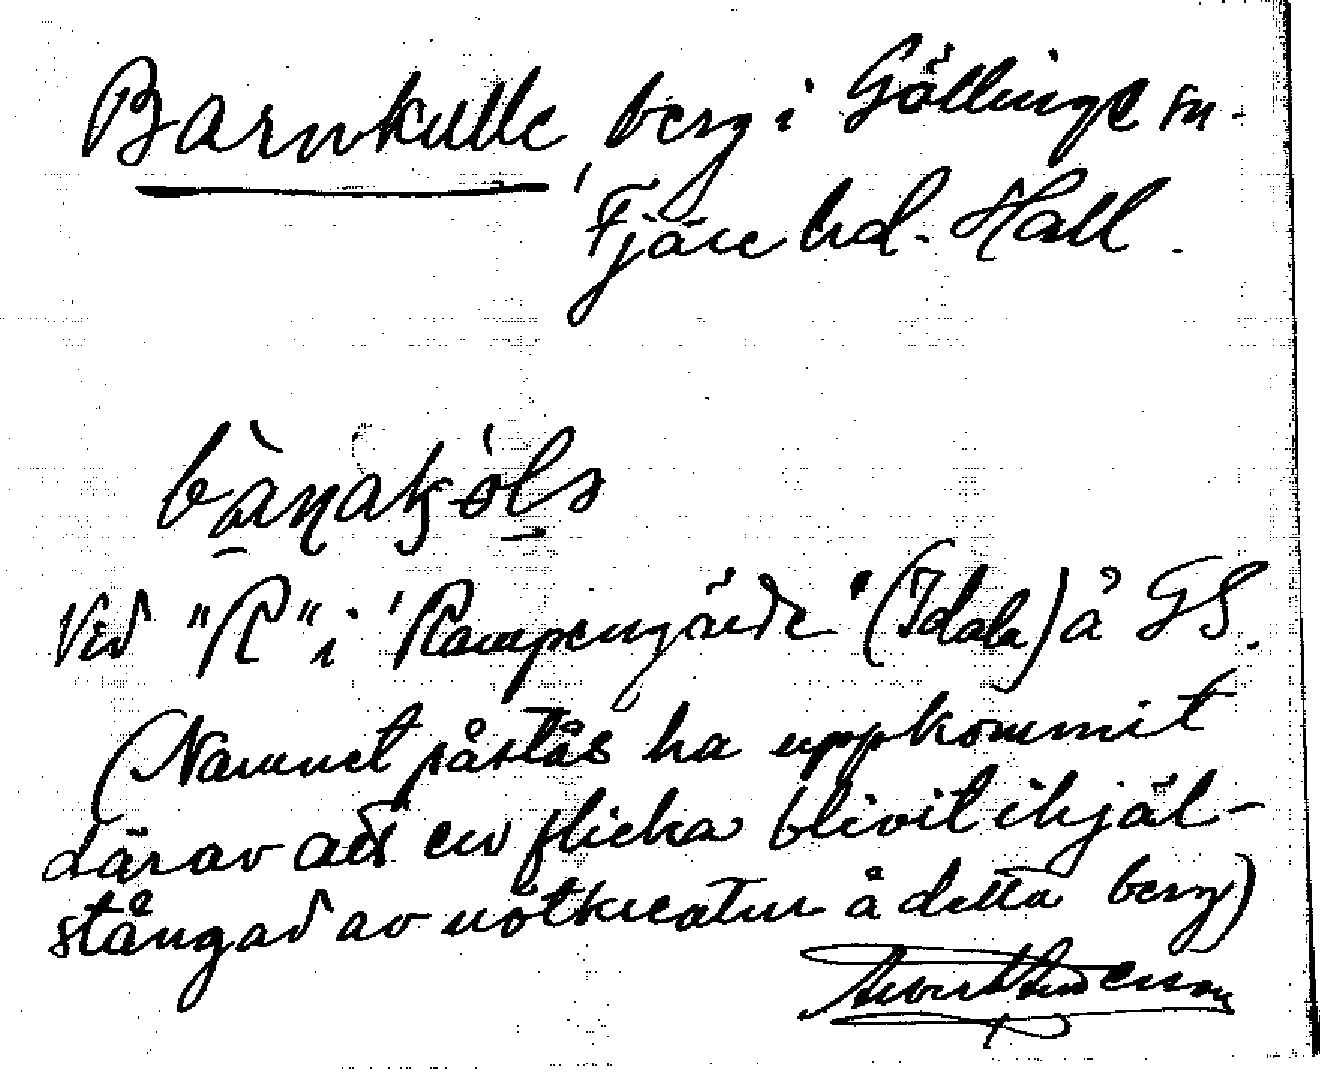 Barnkulle, berg i Gällinge sn.
Fjäre hd. Hall.
Ved "R" i "Rampengärde" (Idala) å GS.
(Namnet påstås ha uppkommit
därav att en flicka blivit ihjäl-
stångad av nötkreatur å detta berg)
Albert Andersson